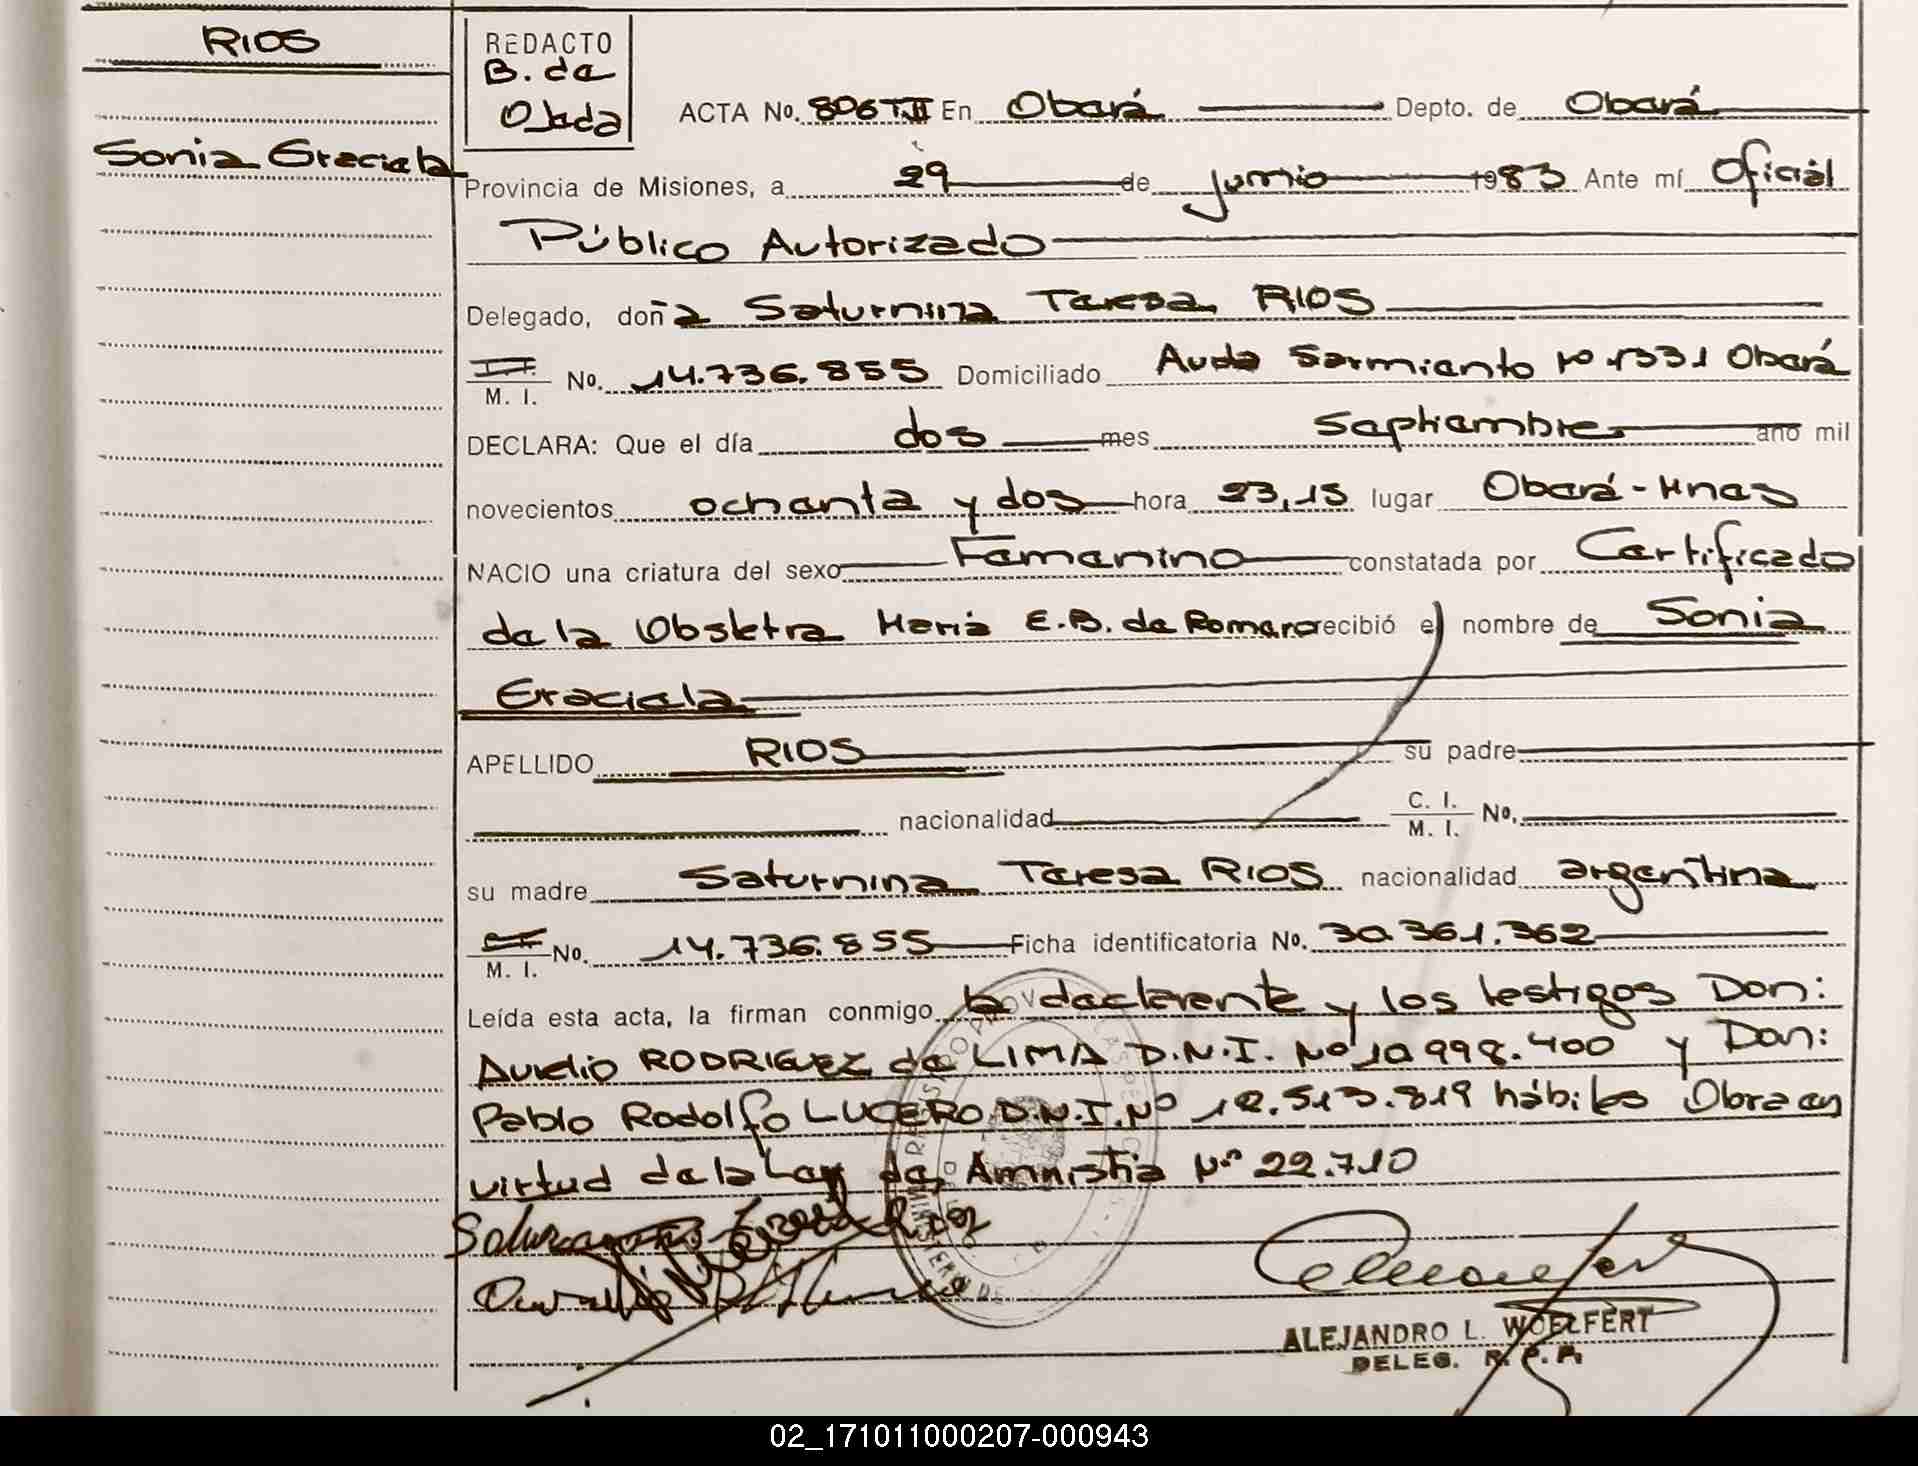 RIOS
Sonia Graciela
REDACTO
B. de
Ojeda
ACTA No. 806 T.II En Oberá Depto. de Oberá
Provincia de Misiones, a 29 de junio 1983 Ante mí Oficial
Público Autorizado
Delegado, doña Saturnina Teresa RIOS
M. I. No. 14.736.855 Domiciliado Avda Sarmiento Nº 1331 Oberá
DECLARA: Que el día dos mes Septiembre año mil
novecientos ochenta y dos hora 23,15 lugar Oberá - Mnes
NACIO una criatura del sexo Femenino constatada por Certificado
de la Obstetra Maria E.B. de Romero recibió el nombre de Sonia
Graciela
APELLIDO RIOS su padre
nacionalidad C. I. M. I. No.
su madre Saturnina Teresa RIOS nacionalidad argentina
M. I. No. 14.736.855 Ficha identificatoria No. 30.361.362
Leída esta acta, la firman conmigo la declarante y los testigos Don:
Aurelio RODRIGUEZ de LIMA D.N.I. Nº 10.998.400 y Don:
Pablo Rodolfo LUCERO D.N.I. Nº 12.513.819 hábiles Obra en
virtud de la Ley de Amnistia Nº 22.710
ALEJANDRO L. WOELFERT
DELEG. R. P. P.
02_171011000207-000943